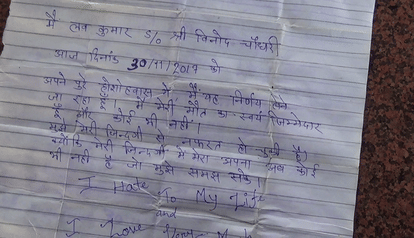 मैं लव कुमार S/O श्री विनोद चौधरी
आज दिनांक 30/11/2019 को
अपने पुरे होशोहवास में मैं यह निर्णय लेने
जा रहा हूँ। मैं मेरी मौत का स्वयं जिम्मेदार
हूँ और कोई भी नहीं।
मुझे मेरी जिन्दगी से नफरत हो चुकी है।
क्योंकि मेरी जिन्दगी में मेरा अपना अब कोई
भी नहीं है जो मुझे समझ सके।
I Hate To My Life
and
I Love